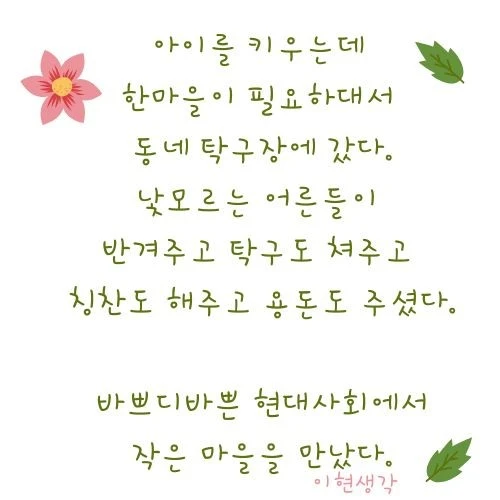 아이를 키우는데
한마을이 필요하대서
동네 탁구장에 갔다.
낯모르는 어른들이
반겨주고 탁구도 쳐주고
칭찬도 해주고 용돈도 주셨다.
바쁘디바쁜 현대사회에서
작은 마을을 만났다.
이현생각